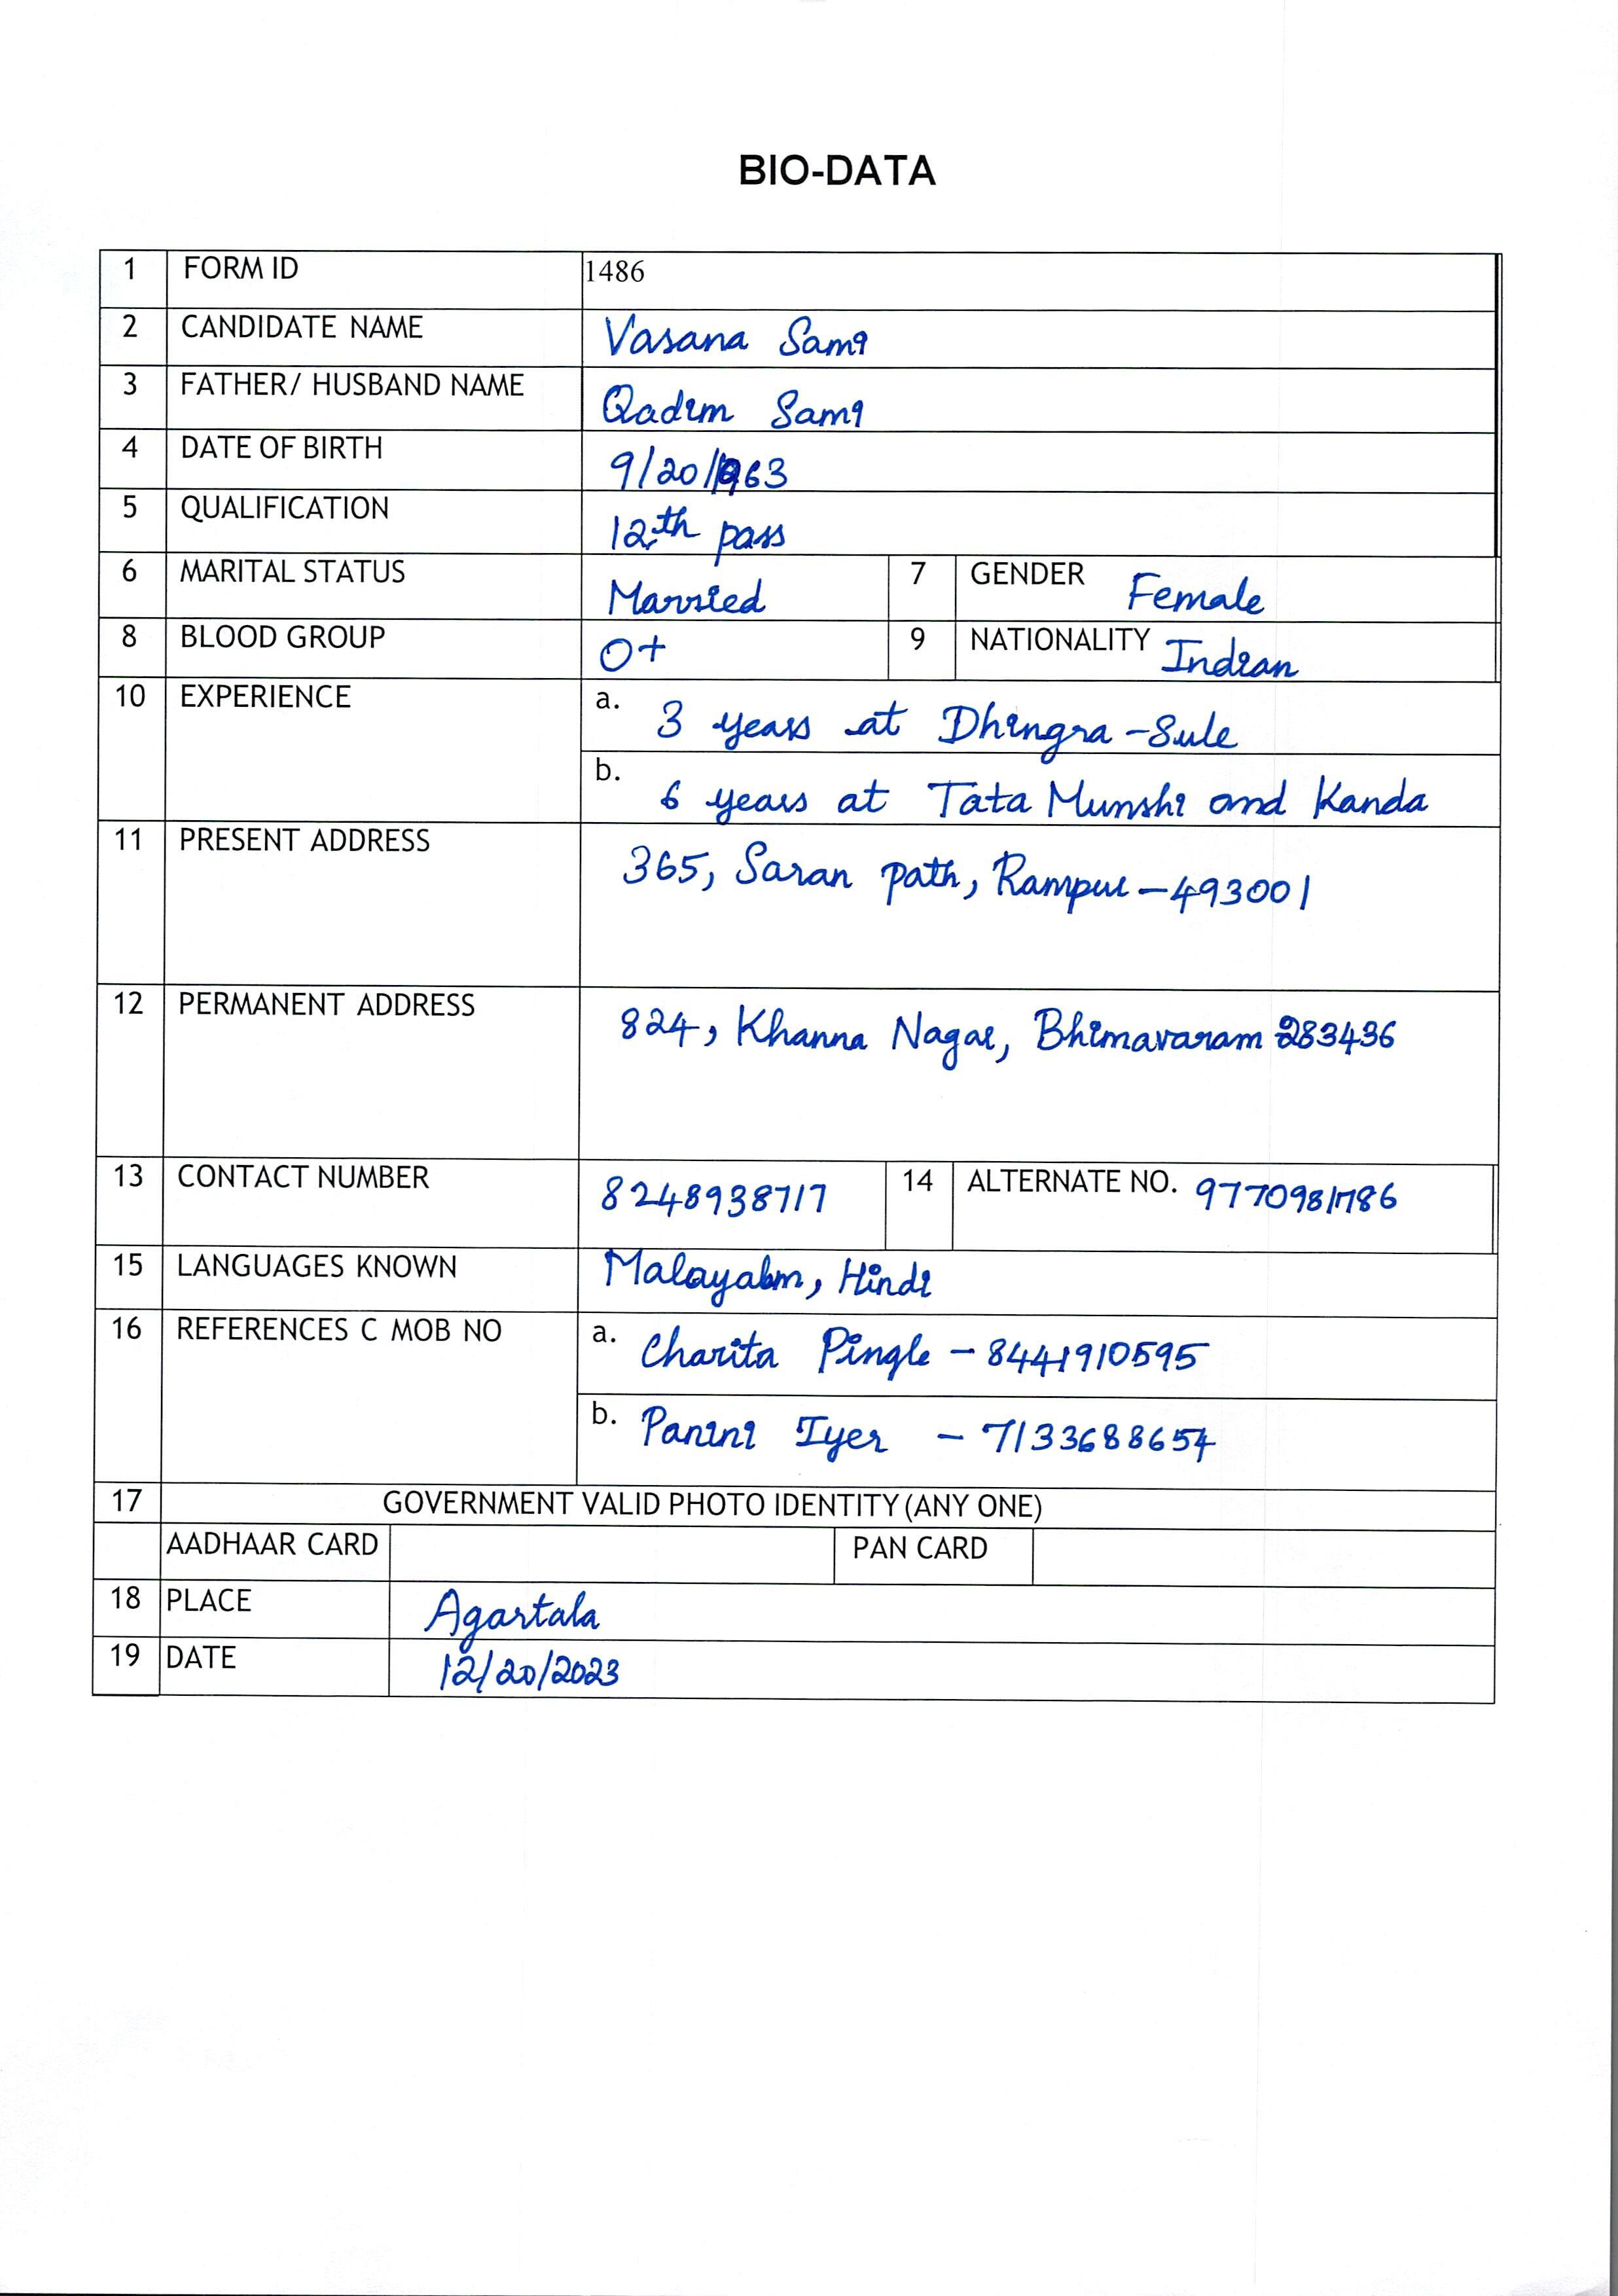 BIO-DATA
1 FORM ID 1486
2 CANDIDATE NAME Vasana Sami
3 FATHER/ HUSBAND NAME Qadim Sami
4 DATE OF BIRTH 9/20/1963
5 QUALIFICATION 12th pass
6 MARITAL STATUS Married 7 GENDER Female
8 BLOOD GROUP O+ 9 NATIONALITY Indian
10 EXPERIENCE a. 3 years at Dhingra-Sule
b. 6 years at Tata Munshi and Kanda
11 PRESENT ADDRESS 365, Saran path, Rampur-493001
12 PERMANENT ADDRESS 824, Khanna Nagar, Bhimavaram 283436
13 CONTACT NUMBER 8248938717 14 ALTERNATE NO. 9770981786
15 LANGUAGES KNOWN Malayalam, Hindi
16 REFERENCES C MOB NO a. Charita Pingle - 8441910595
b. Panini Iyer - 7133688654
17 GOVERNMENT VALID PHOTO IDENTITY (ANY ONE)
AADHAAR CARD PAN CARD
18 PLACE Agartala
19 DATE 12/20/2023